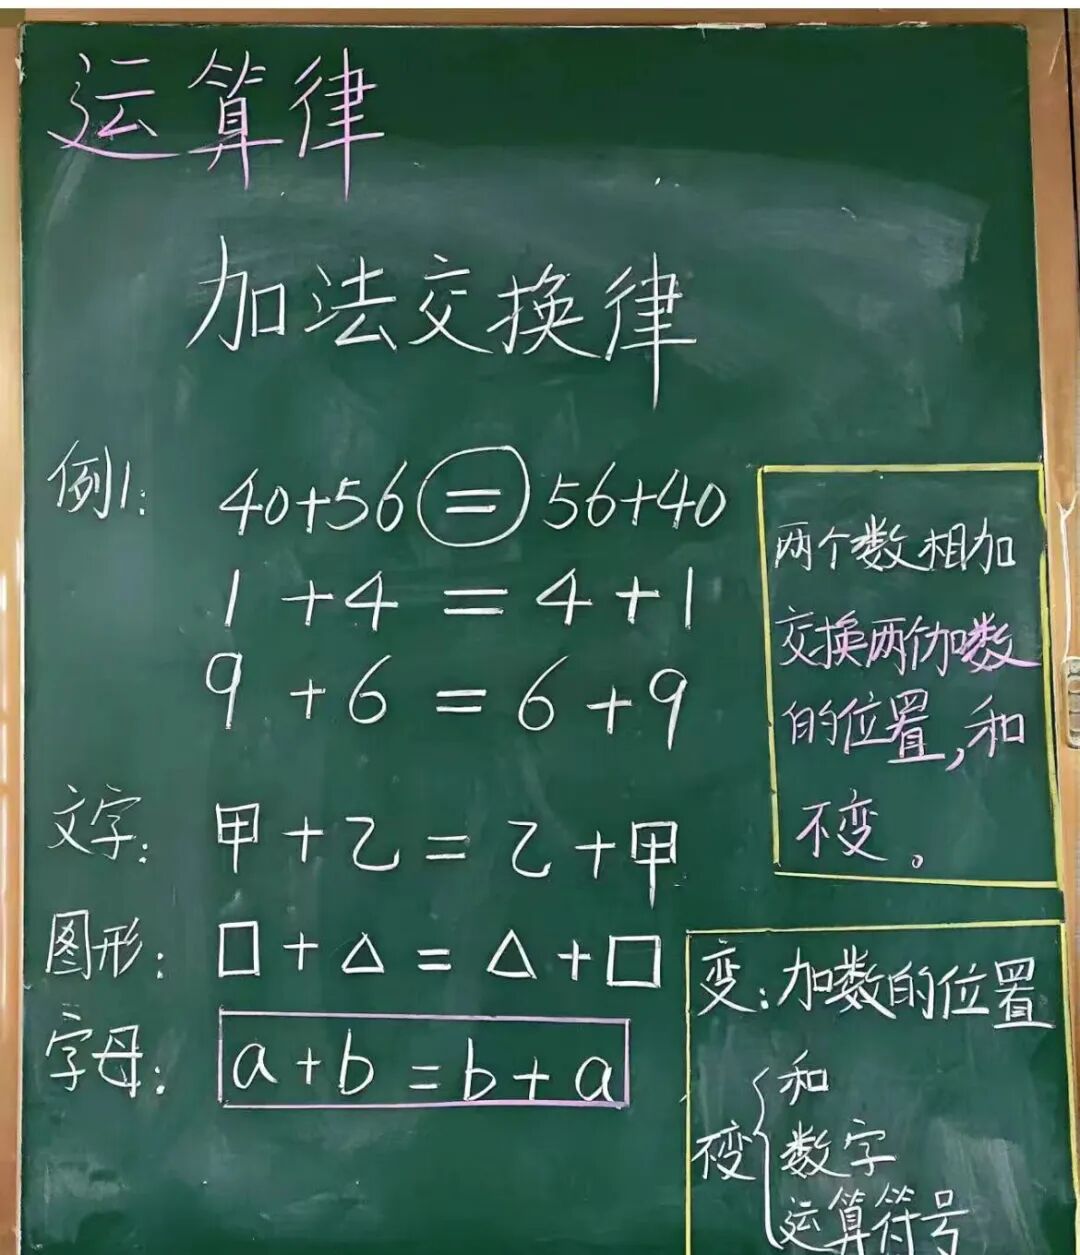 运算律
加法交换律
例1: 40+56=56+40
1+4=4+1
9+6=6+9
文字: 甲+乙=乙+甲
图形: □+△=△+□
字母: a+b=b+a
两个数相加
交换两个加数
的位置,和
不变。
变:加数的位置
不变{和
数字
运算符号